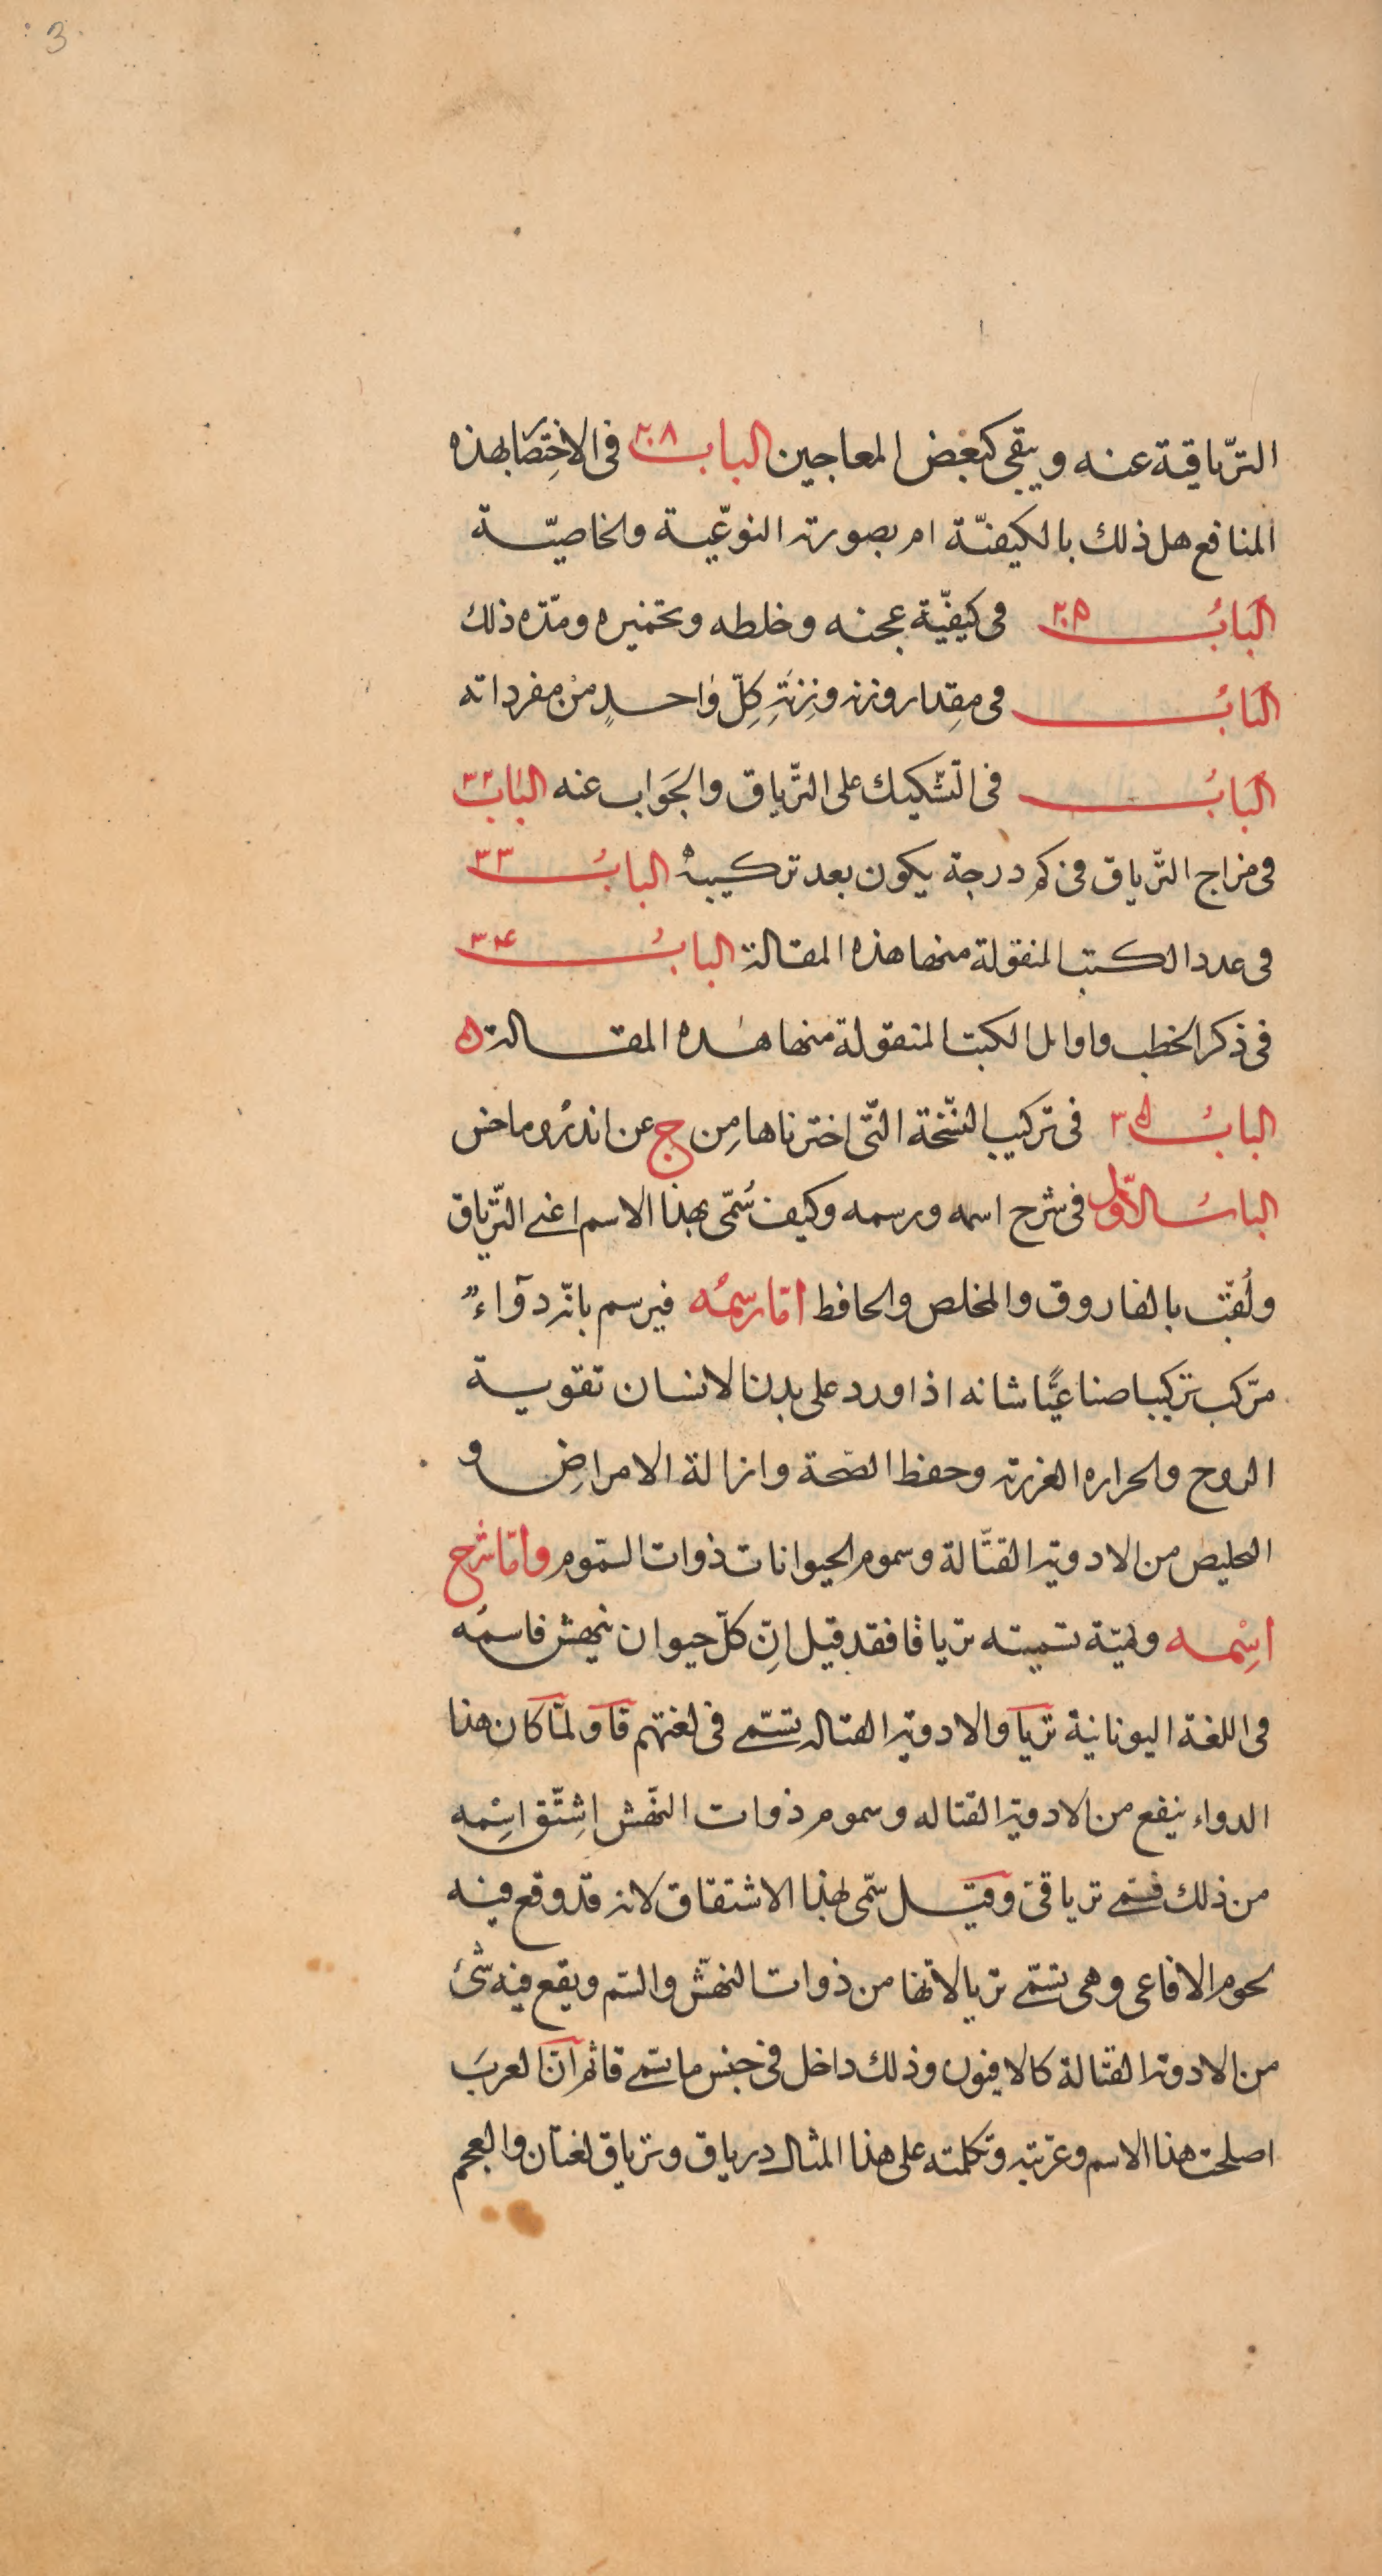 3
الترياقية عنه ويبقى كبعض المعاجين الباب ٢٠٨ فى الاختصا بهذه
المنافع هل ذلك بالكيفيّة ام بصورته النوعيّة والخاصيّة
البَابُ فى كيفيّة عجنه وخلطه وتخميره ومدّه ذلك
البَابُ فى مِقدار وزنه وزِنَةِ كلِّ واحدٍ من مفرداته
البَابُ فى التّشكيك على التّرياق والجَواب عنه البَابُ ٣٢
فى مزاج التّرياق فى كم درجة يكون بعد تركيبهُ البابُ ٣٣
فى عدد الكتب المنقولة منها هذه المقالة البابُ ٣٤
فى ذكر الخطب واوائل الكتب المنقولة منها هذه المقالة ه
البابُ ٣٥ فى تركيب النسّخة التّى اخترناها مِن ج عن اندروماخس
البابُ الاوّل فى شرح اسمه ورسمه وكيف سُمّى بهذا الاسم اعنى التّرياق
ولُقّب بالفاروق والمخلص والحافظ امّا رسمُه فيرسم بانّه دوآءٌ
مرّكب تركيبا صناعيًّا شانه اذا ورد على بدن الانسان تقوية
الروح والحراره الغريزية وحفظ الصّحة وازالة الامراضِ و
التخليص من الادوية القتّالة وسموم الحيوانات ذوات السّموم وامّا شرح
اسِْمه ولميّة تسميته ترياقا فقد قيل انّ كلّ حيوان ينهش فاسمُه
فى اللغة اليونانية تريا والادوية القتاله تسّمى فى لغتهم قا ولمّا كان هذا
الدواء ينفع من الادوية القتاله وسموم ذوات النّهش اشِتّق اسِْمه
من ذلك فسّمى ترياقى وقيل سّمى بهذا الاشتقاق لانه قد وقع فيه
لحوم الافاعى وهى تسّمى تريا لانّها من ذوات النهّش والسّم ويقع فيه شئ
من الادوية القتالة كالافيون وذلك داخل فى جنس ما يسّمى قا ثم انّ العربَ
اصلحت هذا الاسم وعرّبته وتكلمته على هذا المثال درياق وترياق لغتان والعجم